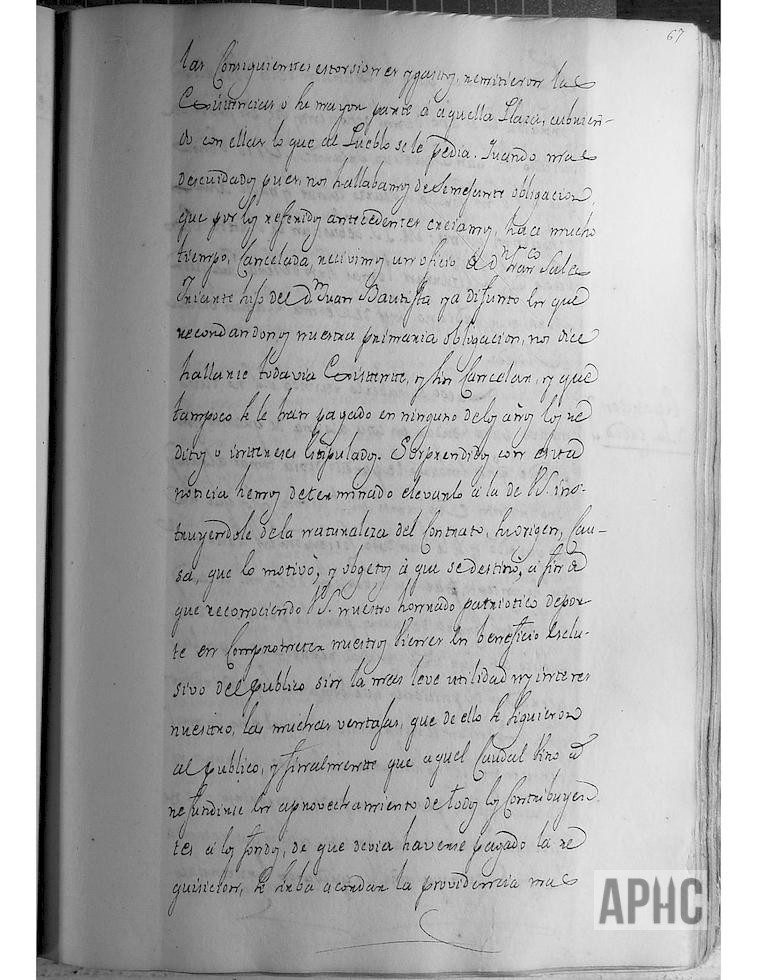 67
las Consiguientes estorsiones y gastos, remitieron las
Existencias o la mayor parte à aquella Plaza, cubrien-
do con ellas lo que al Pueblo se le pedia. Quando mas
descuidados pues, nos hallabamos de semejante obligacion,
que por los referidos antecedentes creiamos, hace mucho
tiempo, Cancelada, recivimos un oficio de Dn Franco Salas
Iniante hijo del Dn Juan Bautista ya difunto en que
recordandonos nuestra primaria obligacion, nos dice
hallarse todavia Existente, y sin Cancelar, y que
tampoco se le han pagado en ninguno de los años los re
ditos o intereses estipulados. Sorprendidos con esta
noticia hemos determinado elevarlo a la de V.S. ins-
truyendole de la naturaleza del Contrato, su origen, Cau-
sa, que lo motivò, y obgetos à que se destinò, a fin de
que reconociendo V.S. nuestro honrrado patriotico depor
te en Comprometer nuestros Vienes en beneficio esclu-
sivo del publico sin la mas leve utilidad ny interes
nuestro, las muchas ventajas, que de ello se siguieron
al publico, y finalmente que aquel Caudal vino à
refundirse en aprovechamiento de todos los Contribuyen
tes a los fondos, de que devia haverse pagado la re
quisicion, se sirba acordar la providencia mas
APHC